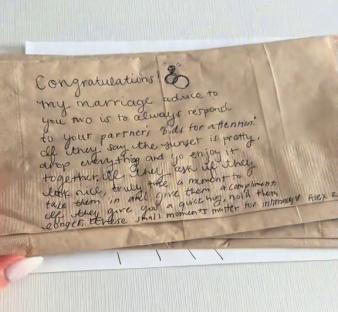 Congratulations!
my marriage advice to
you two is to always respond
to your partner's "bids for attention"
If they say the sunset is pretty,
drop everything and go enjoy it
together, If they ask if they
look nice, truly take a moment to
take them in and give them a compliment
If they give you a quick hug, hold them
longer. these small moments matter for intimacy Alex